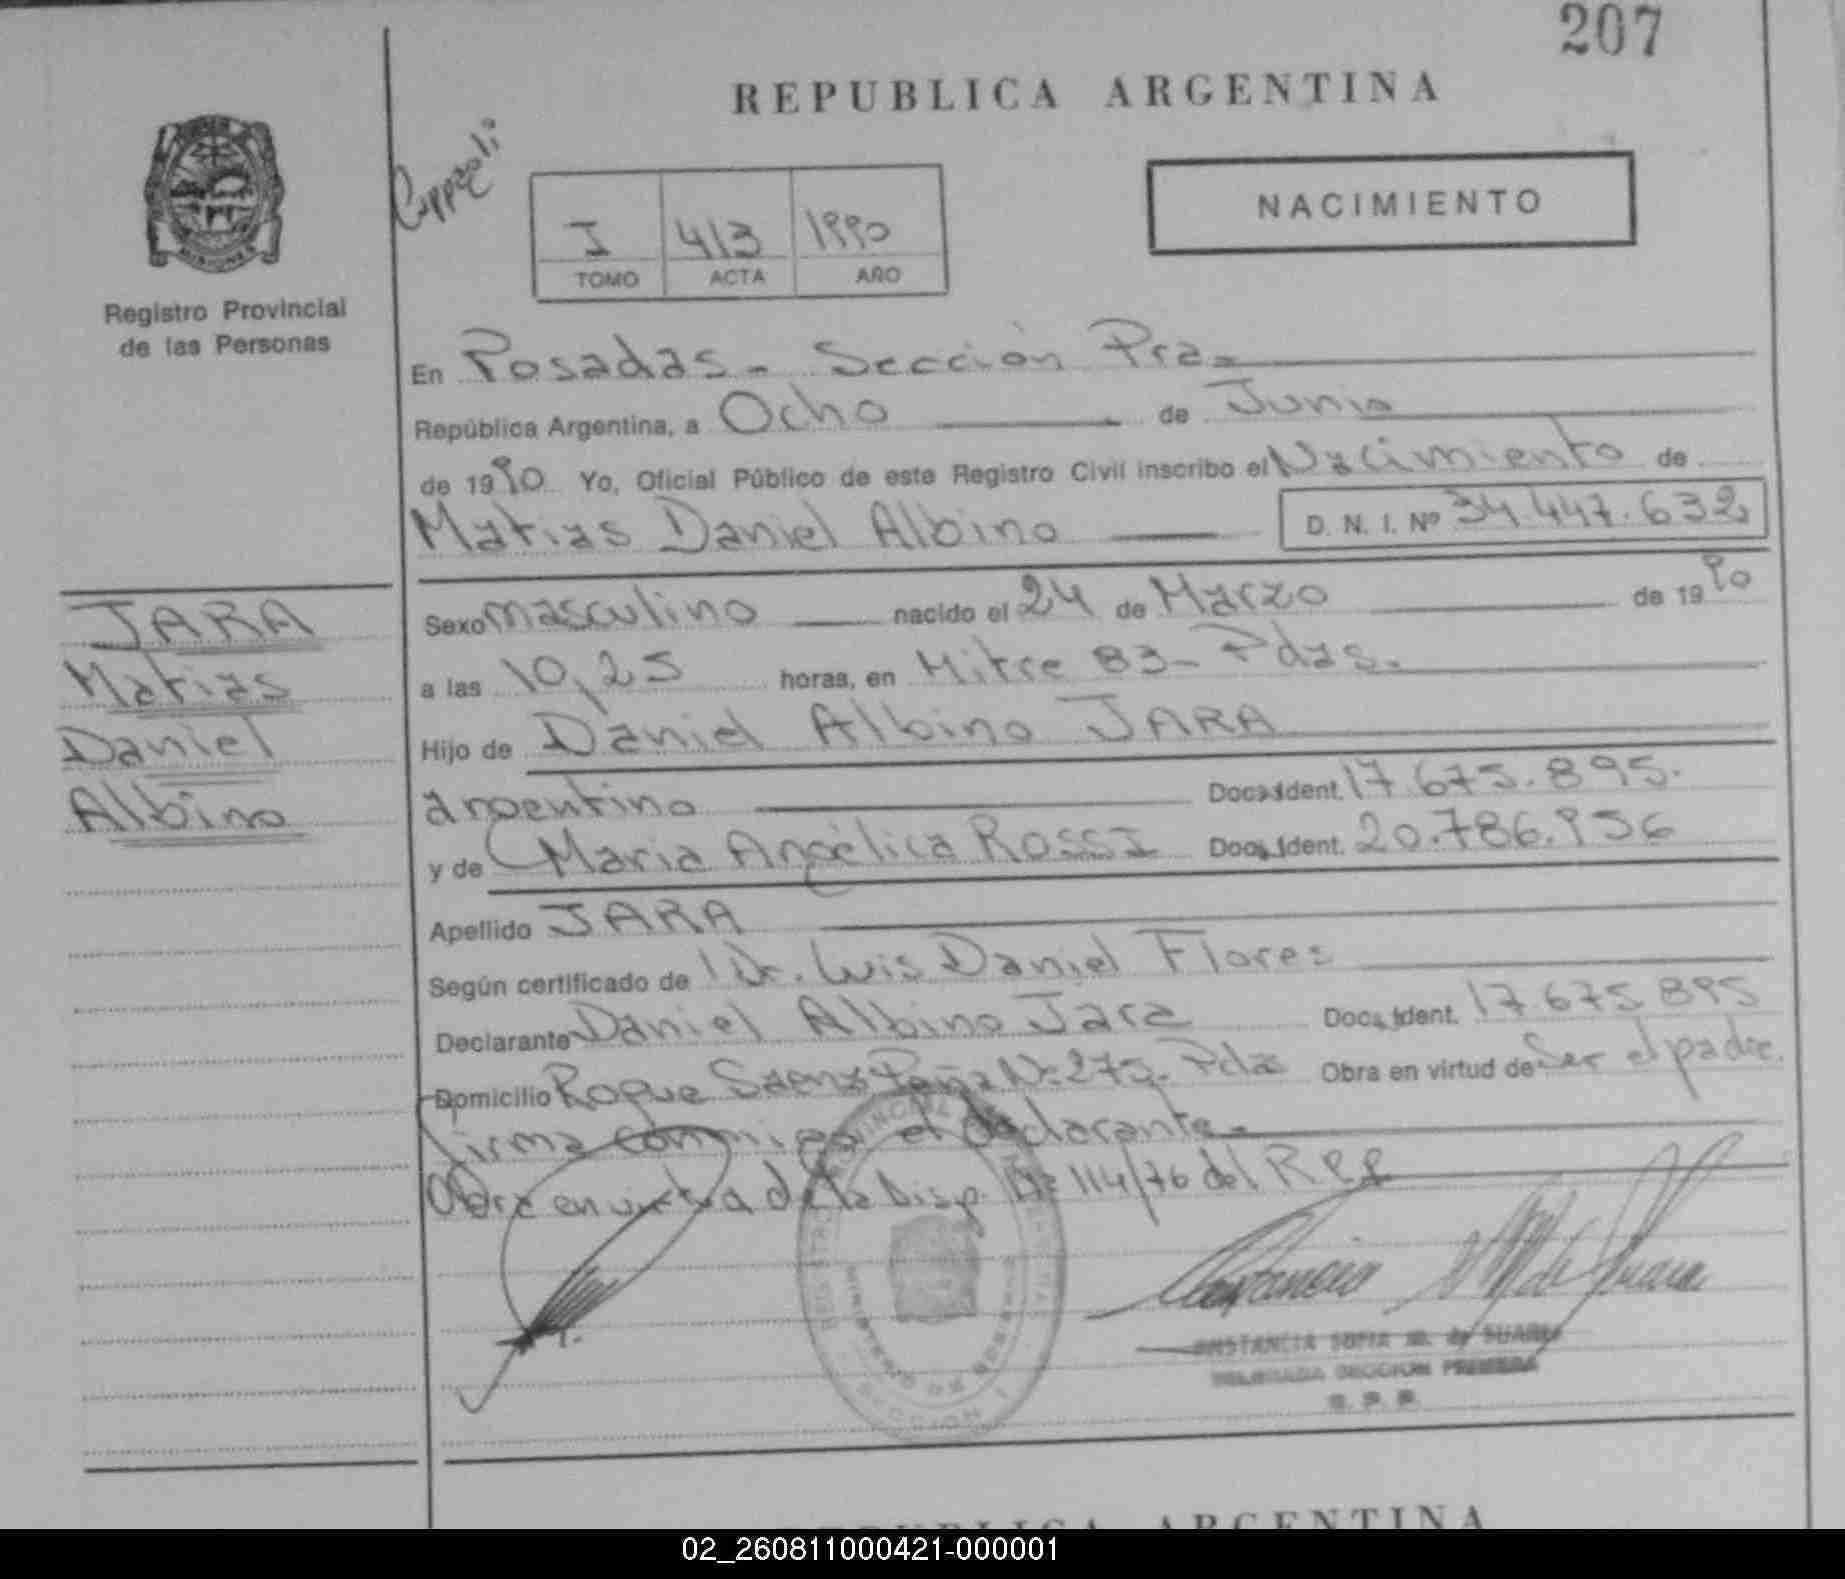 207
REPUBLICA ARGENTINA
MISIONES
Registro Provincial
de las Personas
I 413 1990
TOMO ACTA AÑO
NACIMIENTO
En Posadas - Sección Pra -
República Argentina, a Ocho de Junio
de 1990 Yo, Oficial Público de este Registro Civil inscribo el Nacimiento de
Matias Daniel Albino D. N. I. Nº 34.447.632
JARA
Matias
Daniel
Albino
Sexo masculino nacido el 24 de Marzo de 1990
a las 10,25 horas, en Mitre 83 - Pdas.
Hijo de Daniel Albino JARA
argentino Doc. Ident. 17.675.895.
y de Maria Angélica ROSSI Doc. Ident. 20.786.956
Apellido JARA
Según certificado de Dr. Luis Daniel Flores
Declarante Daniel Albino Jara Doc. Ident. 17.675.895
Domicilio Roque Saenz Peña Nº 275 - Pdas Obra en virtud de Ser el padre.
firma conmigo el declarante -
Obra en virtud de la Disp. Nº 114/76 del RPP
CONSTANCIA SOFIA M. de SUAREZ
DELEGADA SECCION PRIMERA
R. P. P.
REPUBLICA ARGENTINA
02_260811000421-000001